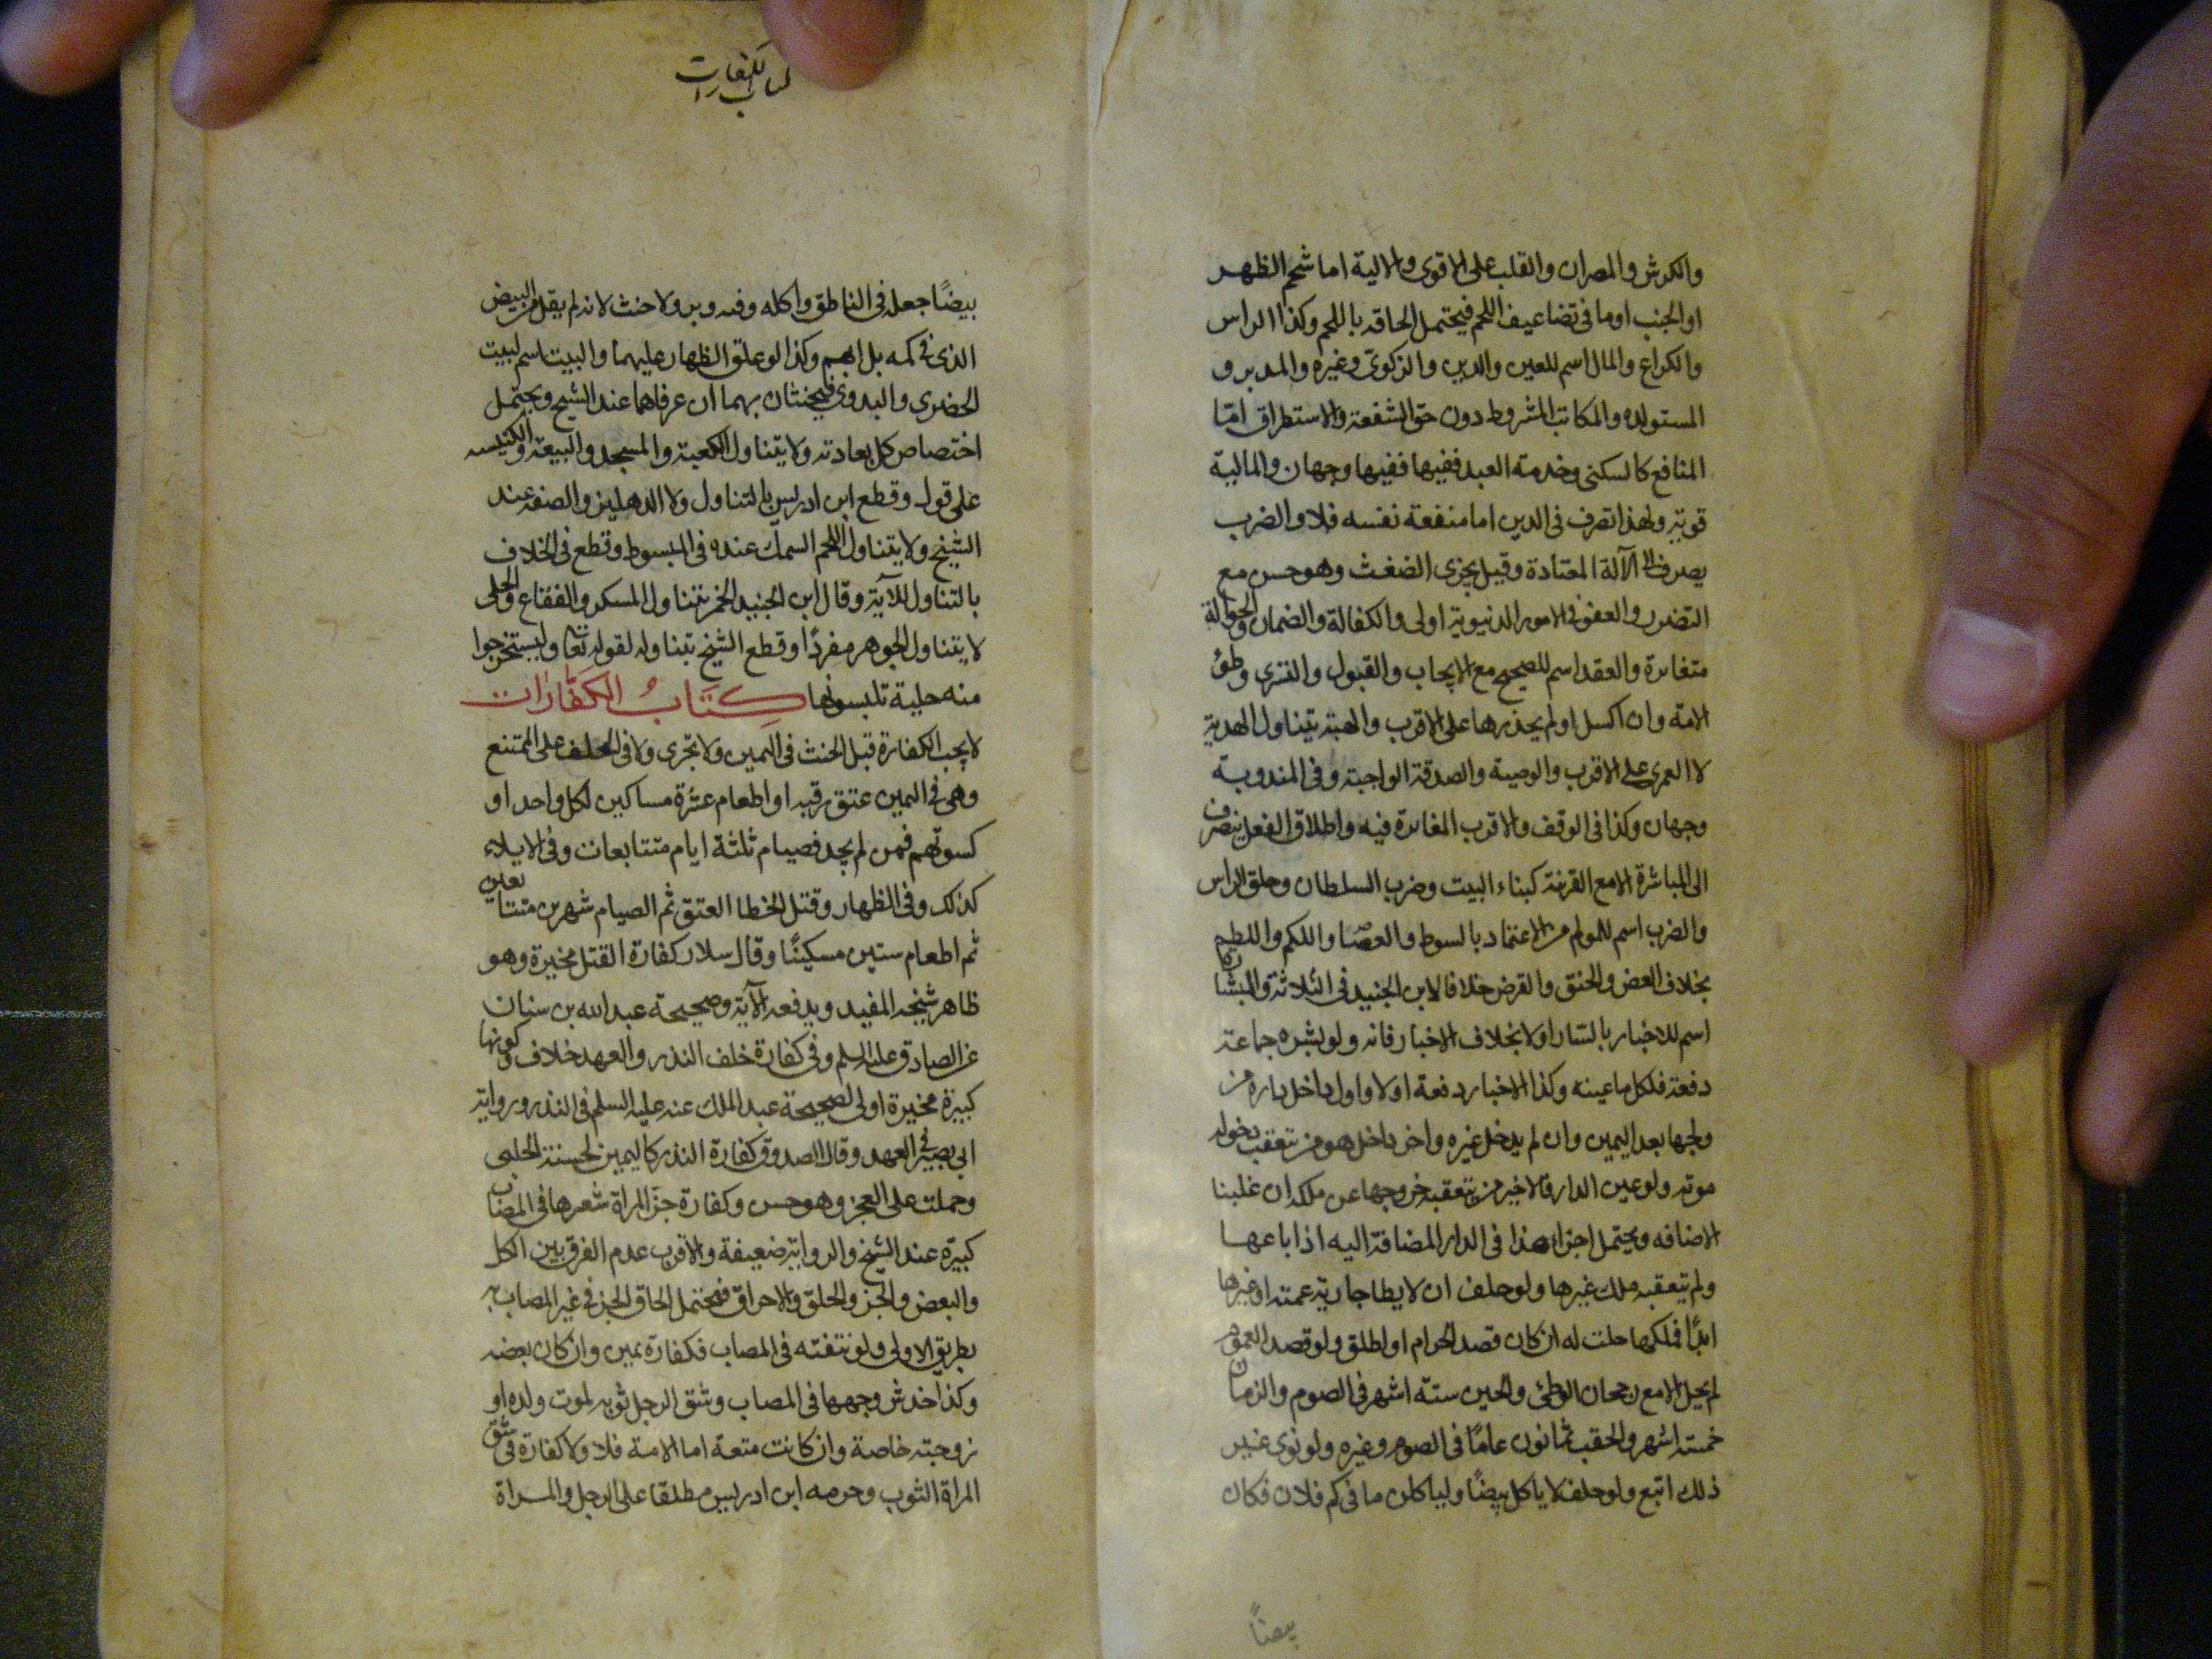 والكرش والمصران والقلب على الاقوى والالية اما شحم الظهر
او الجنب او ما في تضاعيف اللحم فيحتمل الحاقه باللحم وكذا الراس
والكراع والمال اسم للعين والدين والزكوي وغيره والمدبر و
المستولده والمكاتب المشروط دون حق الشفعة والاستطراق امّا
المنافع كالسكنى وخدمة العبد ففيها ففيها وجهان والمالية
قوية ولهذا تصرف في الدين اما منفعة نفسه فلا والضرب
يصرف الى الآلة المعتادة وقيل يجزى الضغث وهو حسن مع
التضرر والعفو في الامور الدنيوية اولى والكفالة والضمان والحوالة
متغايرة والعقد اسم للصحيح مع الايجاب والقبول والتسري وطئ
الامة وان اكسل او لم يخدرها على الاقرب والهبة يتناول الهدية
لا العمرى على الاقرب والوصية والصدقة الواجبة وفي المندوبة
وجهان وكذا في الوقف والاقرب المغايرة فيه واطلاق الفعل ينصرف
الى المباشرة الا مع القرينة كبناء البيت وضرب السلطان وحلق الراس
والضرب اسم للمولم من الاعتماد بالسوط والعصا واللكم واللطم
بخلاف العض والخنق والقرض خلافا لابن الجنيد في الثلاثة والبشارة
اسم للاخبار بالسار اولا بخلاف الاخبار فانه ولو بشره جماعة
دفعة فلكل ما عينه وكذا الاخبار دفعة اولا واول داخل داره من
ولجها بعد اليمين وان لم يدخل غيره واخر داخل هو من يتعقب دخوله
موته ولو عين الدار فالاخير من يتعقبه خروجها عن ملكه ان غلبنا
الاضافه ويحتمل اجزاء هذا في الدار المضافة اليه اذا باعها
ولم يتعقبه ملك غيرها ولو حلف ان لا يطا جارية عمته او غيرها
ابدًا فملكها حلت له ان كان قصد الحرام او اطلق ولو قصد العموم
لم يحل الا مع رجحان الوطئ والحين ستة اشهر في الصوم والزمان
خمسة اشهر والحقب ثمانون عامًا في الصوم وغيره ولو نوى غير
ذلك اتبع ولو حلف لا ياكل بيضًا ولياكلن ما في كم فلان فكان
بيضًا
كتاب الكفارات
بيضًا جعله في الناطق واكله وفى وبر ولا حنث لانه لم يقل من البيض
الذى في كمه بل ابهم وكذا لو علق الظهار عليهما والبيت اسم لبيت
الحضري والبدوى فيحنثان بهما ان عرفاهما عند الشيخ ويحتمل
اختصاص كل بعادته ولا يتناول الكعبة والمسجد والبيعة والكنيسه
على قول وقطع ابن ادريس بالتناول ولا الدهليز والصفة عند
الشيخ ولا يتناول اللحم السمك عنده في المبسوط وقطع في الخلاف
بالتناول للآية وقال ابن الجنيد الخمر يتناول المسكر والفقاع والحلى
لا يتناول الجوهر مفردًا وقطع الشيخ بتناوله لقوله تعا وليستخرجوا
منه حلية تلبسونها كِتَابُ الكَفَّارَات
لا يجب الكفارة قبل الحنث في اليمين ولا تجزى ولا في الحلف على الممتنع
وهي في اليمين عتق رقبه او اطعام عشرة مساكين لكل واحد او
كسوتهم فمن لم يجد فصيام ثلثة ايام متتابعات وفي الايلاء
كذلك وفي الظهار وقتل الخطا العتق ثم الصيام شهرين متتابعين
ثم اطعام ستين مسكينًا وقال سلار كفارة القتل مخيرة وهو
ظاهر شيخه المفيد ويدفعه الآية وصحيحة عبد الله بن سنان
عن الصادق عليه السلم وفي كفارة خلف النذر والعهد خلاف وكونها
كبيرة مخيرة اولى لصحيحة عبد الملك عنه عليه السلم في النذر ورواية
ابى بصير في العهد وقال الصدوق كفارة النذر كاليمين لحسنة الحلبى
وحملت على العجز وهو حسن وكفارة جز المراة شعرها في المصاب
كبيرة عند الشيخ والرواية ضعيفة والاقرب عدم الفرق بين الكل
والبعض والجز والحلق والاحراق فيحتمل الحاق الجز في غير المصاب به
بطريق الاولى ولو نتفته في المصاب فكفارة يمين وان كان بعضه
وكذا خدش وجهها في المصاب وشق الرجل ثوبه لموت ولده او
زوجته خاصة وان كانت متعة اما الامة فلا ولا كفارة في شق
المراة الثوب وحرمه ابن ادريس مطلقا على الرجل والمراة